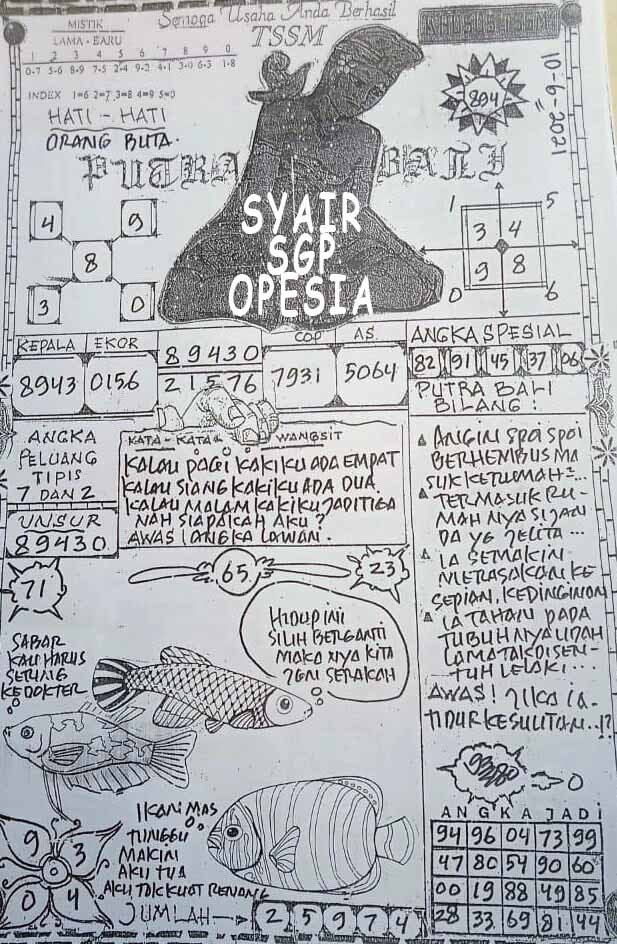 Semoga Usaha Anda Berhasil
TSSM
MISTIK
LAMA - BARU
1 2 3 4 5 6 7 8 9 0
0-7 5-6 8-9 7-5 2-4 9-2 4-1 3-0 6-3 1-8
INDEX 1=6 2=7 3=8 4=9 5=0
HATI - HATI
ORANG BUTA.
894
10-6-2021
PUTRA BALI
SYAIR
SGP
OPESIA
4 9
8
3 0
1 5
3 4
9 8
0 6
KEPALA EKOR
8943 0156
89430
21576
COP AS.
7931 5064
ANGKA SPESIAL
82 91 45 37 06
PUTRA BALI
BILANG :
ANGKA
PELUANG
TIPIS
7 DAN 2
UNSUR
89430
KATA - KATA WANGSIT
KALAU PAGI KAKIKU ADA EMPAT
KALAU SIANG KAKIKU ADA DUA
KALAU MALAM KAKIKU JADI TIGA
NAH SIAPAKAH AKU ?
AWAS ! ANGKA LAWAN.
ANGIN SPOI SPOI
BERHEMBUS MA
SUK KERUMAH...
TERMASUK RU-
MAH NYA SI JAN
DA YG JELITA ...
IA SEMAKIN
MERASAKAN KE
SEPIAN, KEDINGINAN
IA TAHAN PADA
TUBUHNYA UDAH
LAMA TAK DI SEN-
TUH LELAKI...
AWAS! JIKA IA
TIDUR KESULITAN..!?
71
65
23
SABAR
KAU HARUS
SERING
KE DOKTER
HIDUP INI
SILIH BERGANTI
MAKA NYA KITA
JGN SERAKAH
IKAN MAS
TUNGGU
MAKIN
AKU TUA
AKU TAK KUAT RENANG
9 3
0 4
JUMLAH 2 5 9 7 4
0
ANGKA JADI
94 96 04 73 99
47 80 54 90 60
00 19 88 49 85
28 33 69 81 44